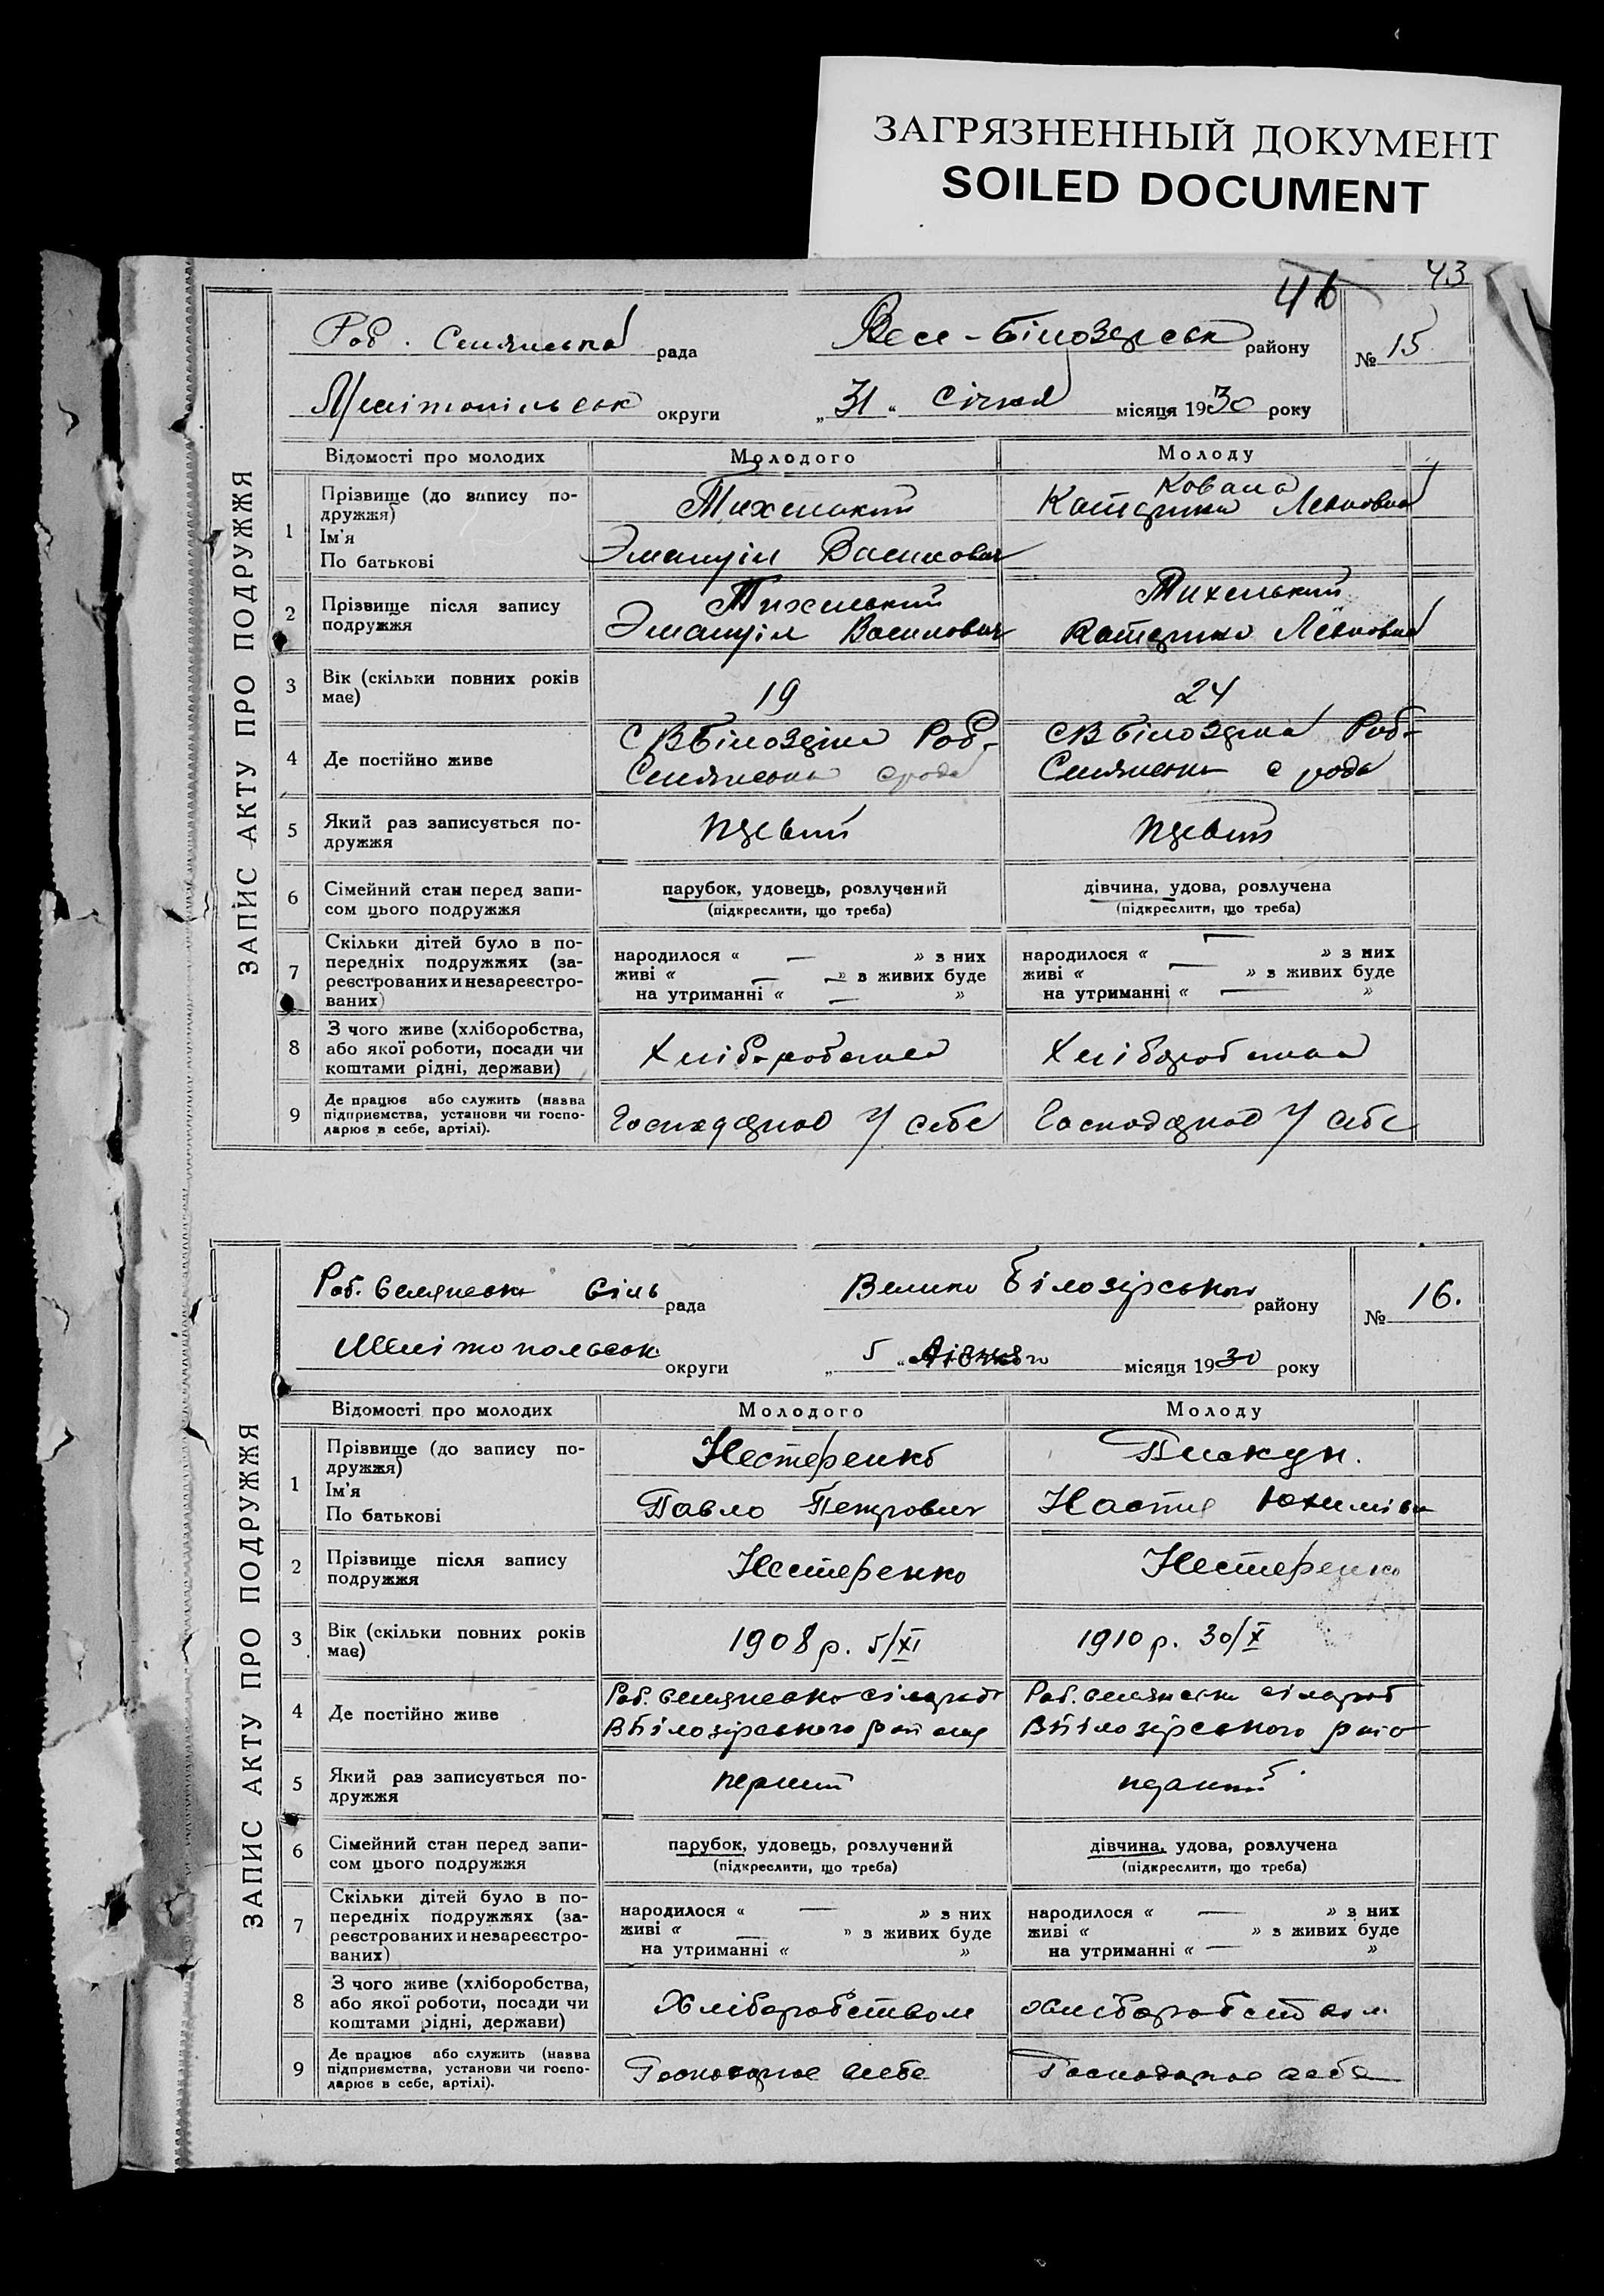 ЗАГРЯЗНЕННЫЙ ДОКУМЕНТ
SOILED DOCUMENT
43
46
ЗАПИС АКТУ ПРО ПОДРУЖЖЯ
Роб. Селянська рада Вел-Білозерськ району № 15
Мелітопільськ округи „31“ Січня місяця 1930 року
Відомості про молодих Молодого Молоду
1 Прізвище (до запису подружжя) Тихенький Кована
Ім'я
По батькові Эмануіл Васильович Катерина Леоновна
2 Прізвище після запису подружжя Тихенький Тихенький
Эмануіл Василович Катерина Леоновна
3 Вік (скільки повних років має) 19 24
4 Де постійно живе С ВБілозірка Роб- С ВБілозірка Роб-
Селянська с рада Селянська с рада
5 Який раз записується подружжя первий первий
6 Сімейний стан перед записом цього подружжя парубок, удовець, розлучений дівчина, удова, розлучена
(підкреслити, що треба) (підкреслити, що треба)
7 Скільки дітей було в попередніх подружжях (зареєстрованих и незареєстрованих)
народилося « — » з них народилося « — » з них
живі « — » з живих буде живі « — » з живих буде
на утриманні « — » на утриманні « — »
8 З чого живе (хліборобства, або якої роботи, посади чи коштами рідні, держави)
9 Де працює або служить (назва підприємства, установи чи господарює в себе, артілі). у себе у себе
ЗАПИС АКТУ ПРО ПОДРУЖЖЯ
Роб. Селянська Сіль рада Велико Білозірського району № 16.
Мелітопольськ округи „ 5 “ місяця 1930 року
Відомості про молодих Молодого Молоду
1 Прізвище (до запису подружжя) Нестеренко Пискун.
Ім'я
По батькові Павло Петрович Настя Юхимівн
2 Прізвище після запису подружжя Нестеренко Нестеренко
3 Вік (скільки повних років має) 1908 р. 5/XI 1910 р. 30/X
4 Де постійно живе Роб. Селянсько сільрад Роб. Селянськ сільрад
ВБілозірського району ВБілозірського райо
5 Який раз записується подружжя перший
6 Сімейний стан перед записом цього подружжя парубок, удовець, розлучений дівчина, удова, розлучена
(підкреслити, що треба) (підкреслити, що треба)
7 Скільки дітей було в попередніх подружжях (зареєстрованих и незареєстрованих)
народилося « — » з них народилося « — » з них
живі « — » з живих буде живі « » з живих буде
на утриманні « » на утриманні « — »
8 З чого живе (хліборобства, або якої роботи, посади чи коштами рідні, держави) Хліборобством хліборобством
9 Де працює або служить (назва підприємства, установи чи господарює в себе, артілі). Господарює себе Господарює себе